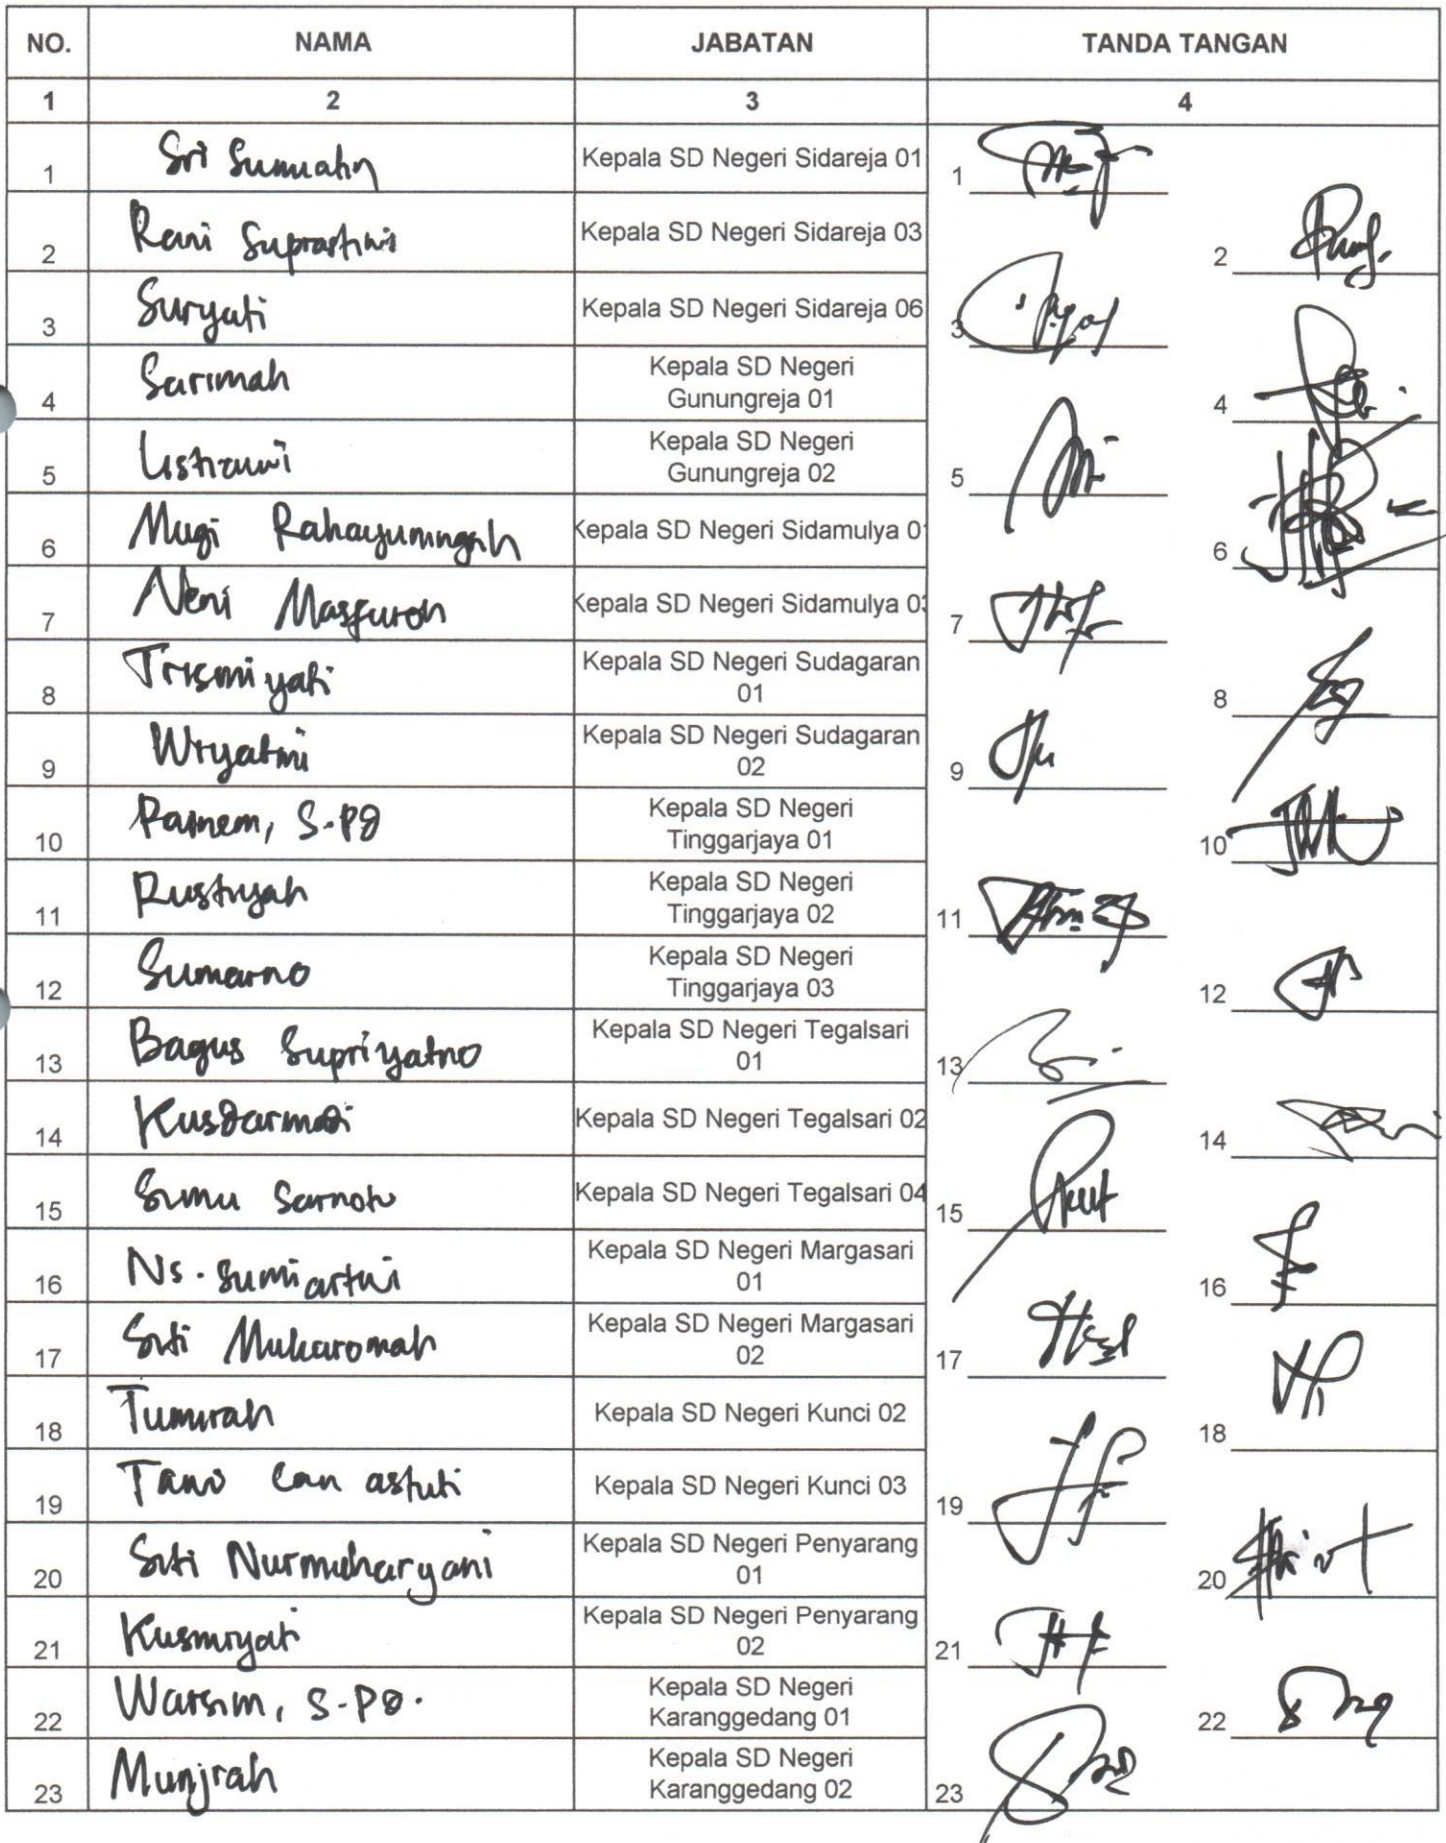 NO. NAMA JABATAN TANDA TANGAN
1 2 3 4
1 Sri Sumiatin Kepala SD Negeri Sidareja 01 1
2 Reni Suprastiwi Kepala SD Negeri Sidareja 03 2
3 Suryati Kepala SD Negeri Sidareja 06 3
4 Sarimah Kepala SD Negeri
Gunungreja 01 4
5 Kepala SD Negeri
Gunungreja 02 5
6 Mugi Rahayuningsih Kepala SD Negeri Sidamulya 01 6
7 Neni Masfuroh Kepala SD Negeri Sidamulya 03 7
8 Trismiyati Kepala SD Negeri Sudagaran
01 8
9 Wiyatmi Kepala SD Negeri Sudagaran
02 9
10 Painem, S.Pd Kepala SD Negeri
Tinggarjaya 01 10
11 Rustiyah Kepala SD Negeri
Tinggarjaya 02 11
12 Sumarno Kepala SD Negeri
Tinggarjaya 03 12
13 Bagus Supriyatno Kepala SD Negeri Tegalsari
01 13
14 Kusdarmadi Kepala SD Negeri Tegalsari 02 14
15 Kepala SD Negeri Tegalsari 04 15
16 Ns. Sumiartini Kepala SD Negeri Margasari
01 16
17 Siti Mukaromah Kepala SD Negeri Margasari
02 17
18 Tumirah Kepala SD Negeri Kunci 02 18
19 astuti Kepala SD Negeri Kunci 03 19
20 Siti Nurmuharyani Kepala SD Negeri Penyarang
01 20
21 Kusmiyati Kepala SD Negeri Penyarang
02 21
22 Warsim, S.Pd. Kepala SD Negeri
Karanggedang 01 22
23 Munjirah Kepala SD Negeri
Karanggedang 02 23